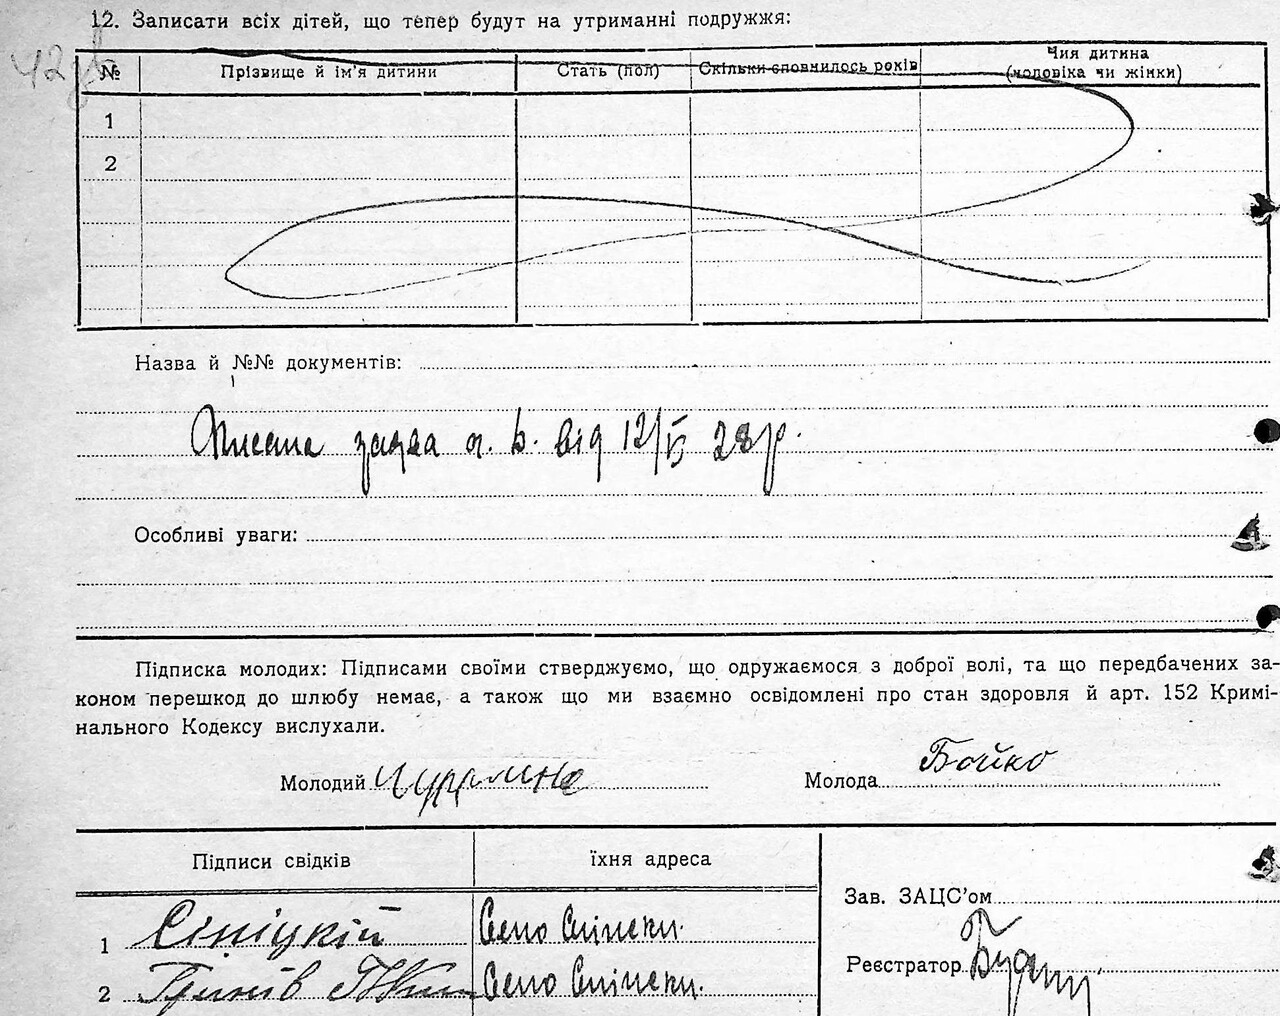 12. Записати всіх дітей, що тепер будут на утриманні подружжя:
№ Прізвище й ім'я дитини Стать (пол) Скільки сповнилось років Чия дитина (чоловіка чи жінки)
1
2
Назва й №№ документів:
заява від 12/ 28р.
Особливі уваги:
Підписка молодих: Підписами своїми стверджуємо, що одружаємося з доброї волі, та що передбачених за-
коном перешкод до шлюбу немає, а також що ми взаємно освідомлені про стан здоровля й арт. 152 Кримі-
нального Кодексу вислухали.
Молодий Молода Бойко
Підписи свідків їхня адреса
Зав. ЗАЦС'ом
1 Сініцкій Село
Реєстратор
2 Село